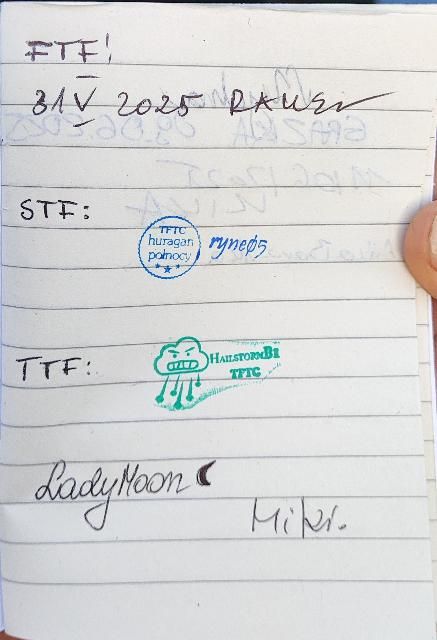 FTF!
31 V 2025 RAUEN
STF:
TFTC
huragan
polnocy
ryneø5
TTF:
HAILSTORMB1
TFTC
LadyMoon
Miki.